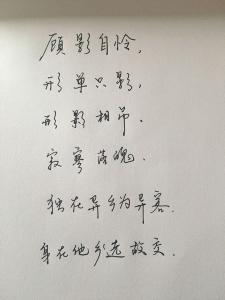 顾影自怜，
形单只影，
形影相吊．
寂寥落魄．
独在异乡为异客．
身在他乡遇故交．